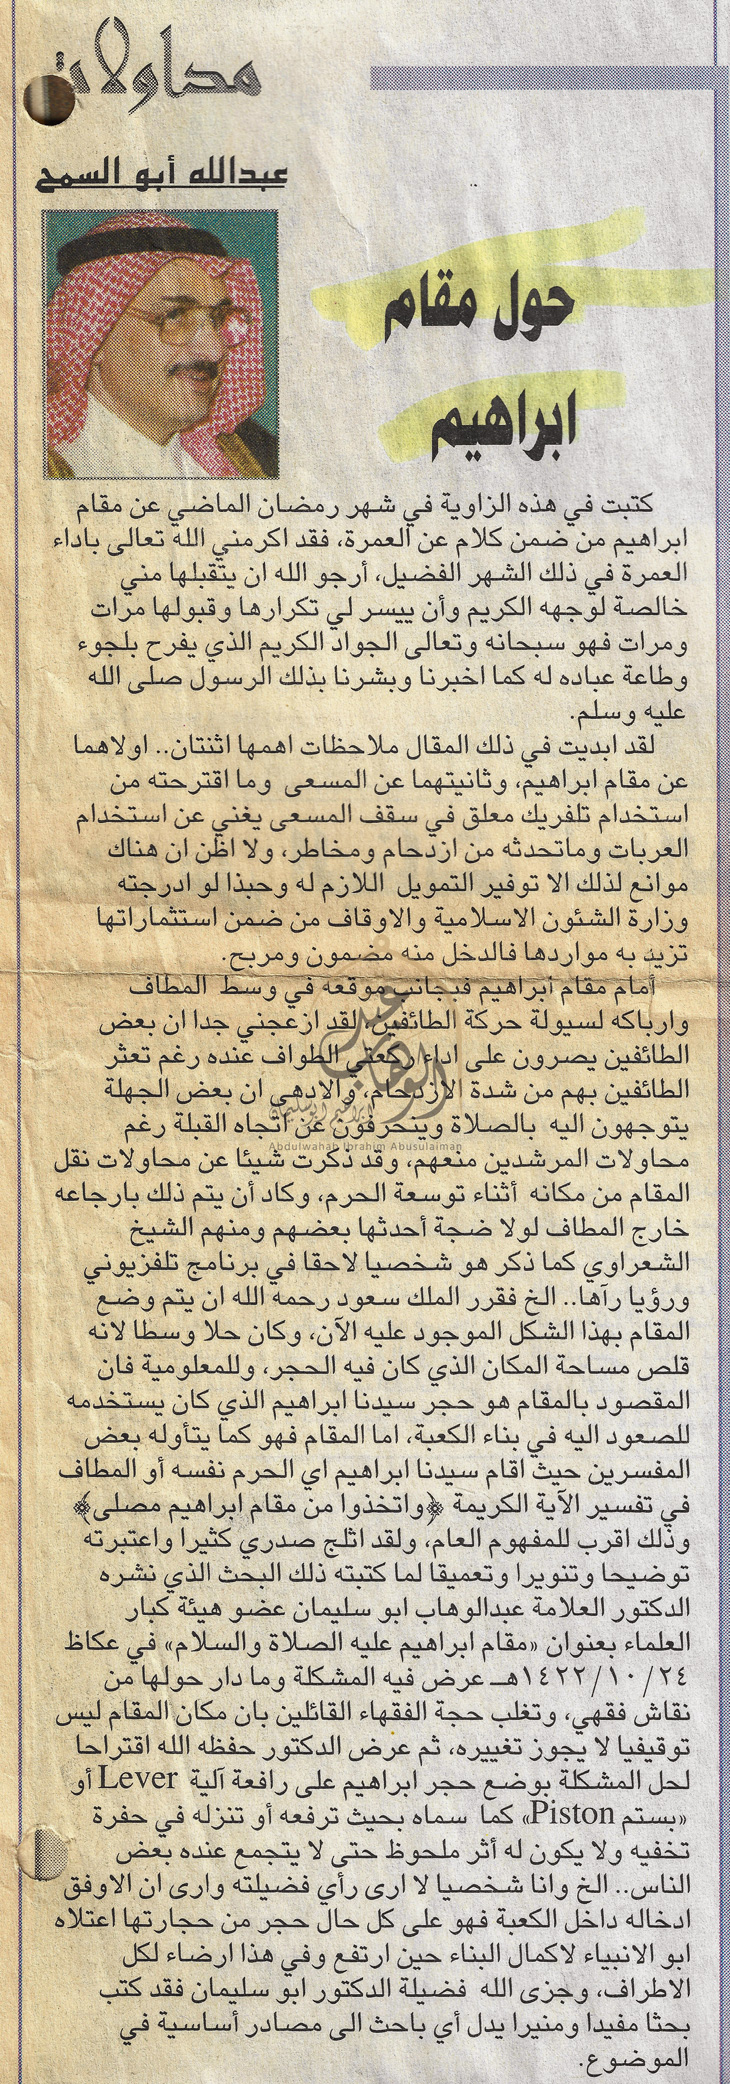 محاولات
عبدالله أبو السمح
حول مقام
ابراهيم
كتبت في هذه الزاوية في شهر رمضان الماضي عن مقام
ابراهيم من ضمن كلام عن العمرة، فقد اكرمني الله تعالى باداء
العمرة في ذلك الشهر الفضيل، أرجو الله ان يتقبلها مني
خالصة لوجهه الكريم وأن ييسر لي تكرارها وقبولها مرات
ومرات فهو سبحانه وتعالى الجواد الكريم الذي يفرح بلجوء
وطاعة عباده له كما اخبرنا وبشرنا بذلك الرسول صلى الله
عليه وسلم.
لقد ابديت في ذلك المقال ملاحظات اهمها اثنتان.. اولاهما
عن مقام ابراهيم، وثانيتهما عن المسعى وما اقترحته من
استخدام تلفريك معلق في سقف المسعى يغني عن استخدام
العربات وماتحدثه من ازدحام ومخاطر، ولا اظن ان هناك
موانع لذلك الا توفير التمويل اللازم له وحبذا لو ادرجته
وزارة الشئون الاسلامية والاوقاف من ضمن استثماراتها
تزيد به مواردها فالدخل منه مضمون ومربح.
أمام مقام ابراهيم فبجانب موقعه في وسط المطاف
وارباكه لسيولة حركة الطائفين، لقد ازعجني جدا ان بعض
الطائفين يصرون على اداء ركعتي الطواف عنده رغم تعثر
الطائفين بهم من شدة الازدحام، والادهى ان بعض الجهلة
يتوجهون اليه بالصلاة وينحرفون عن اتجاه القبلة رغم
عبد الوهاب
ابراهيم ابو سليمان
Abdulwahab Ibrahim Abusulaiman
محاولات المرشدين منعهم، وقد ذكرت شيئا عن محاولات نقل
المقام من مكانه أثناء توسعة الحرم، وكاد أن يتم ذلك بارجاعه
خارج المطاف لولا ضجة أحدثها بعضهم ومنهم الشيخ
الشعراوي كما ذكر هو شخصيا لاحقا في برنامج تلفزيوني
ورؤيا رآها.. الخ فقرر الملك سعود رحمه الله ان يتم وضع
المقام بهذا الشكل الموجود عليه الآن، وكان حلا وسطا لانه
قلص مساحة المكان الذي كان فيه الحجر، وللمعلومية فان
المقصود بالمقام هو حجر سيدنا ابراهيم الذي كان يستخدمه
للصعود اليه في بناء الكعبة، اما المقام فهو كما يتأوله بعض
المفسرين حيث اقام سيدنا ابراهيم اي الحرم نفسه أو المطاف
في تفسير الآية الكريمة ﴿واتخذوا من مقام ابراهيم مصلى﴾
وذلك اقرب للمفهوم العام، ولقد اثلج صدري كثيرا واعتبرته
توضيحا وتنويرا وتعميقا لما كتبته ذلك البحث الذي نشره
الدكتور العلامة عبدالوهاب ابو سليمان عضو هيئة كبار
العلماء بعنوان «مقام ابراهيم عليه الصلاة والسلام» في عكاظ
٢٤/ ١٠/ ١٤٢٢هـ عرض فيه المشكلة وما دار حولها من
نقاش فقهي، وتغلب حجة الفقهاء القائلين بان مكان المقام ليس
توقيفيا لا يجوز تغييره، ثم عرض الدكتور حفظه الله اقتراحا
لحل المشكلة بوضع حجر ابراهيم على رافعة آلية Lever أو
«بستم Piston» كما سماه بحيث ترفعه أو تنزله في حفرة
تخفيه ولا يكون له أثر ملحوظ حتى لا يتجمع عنده بعض
الناس.. الخ وانا شخصيا لا ارى رأي فضيلته وارى ان الاوفق
ادخاله داخل الكعبة فهو على كل حال حجر من حجارتها اعتلاه
ابو الانبياء لاكمال البناء حين ارتفع وفي هذا ارضاء لكل
الاطراف، وجزى الله فضيلة الدكتور ابو سليمان فقد كتب
بحثا مفيدا ومنيرا يدل أي باحث الى مصادر أساسية في
الموضوع.